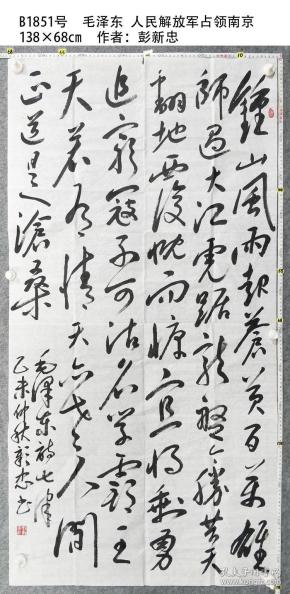 B1851号 毛泽东 人民解放军占领南京
138×68cm 作者：彭新忠
鍾山風雨起蒼黄百万雄
師過大江虎踞龙盘今勝昔天
翻地覆慨而慷宜將剩勇
追窮寇不可沽名学霸王
天若有情天亦老人間
正道是滄桑
毛澤东詩七律
乙未仲秋新忠书
孔夫子旧书网